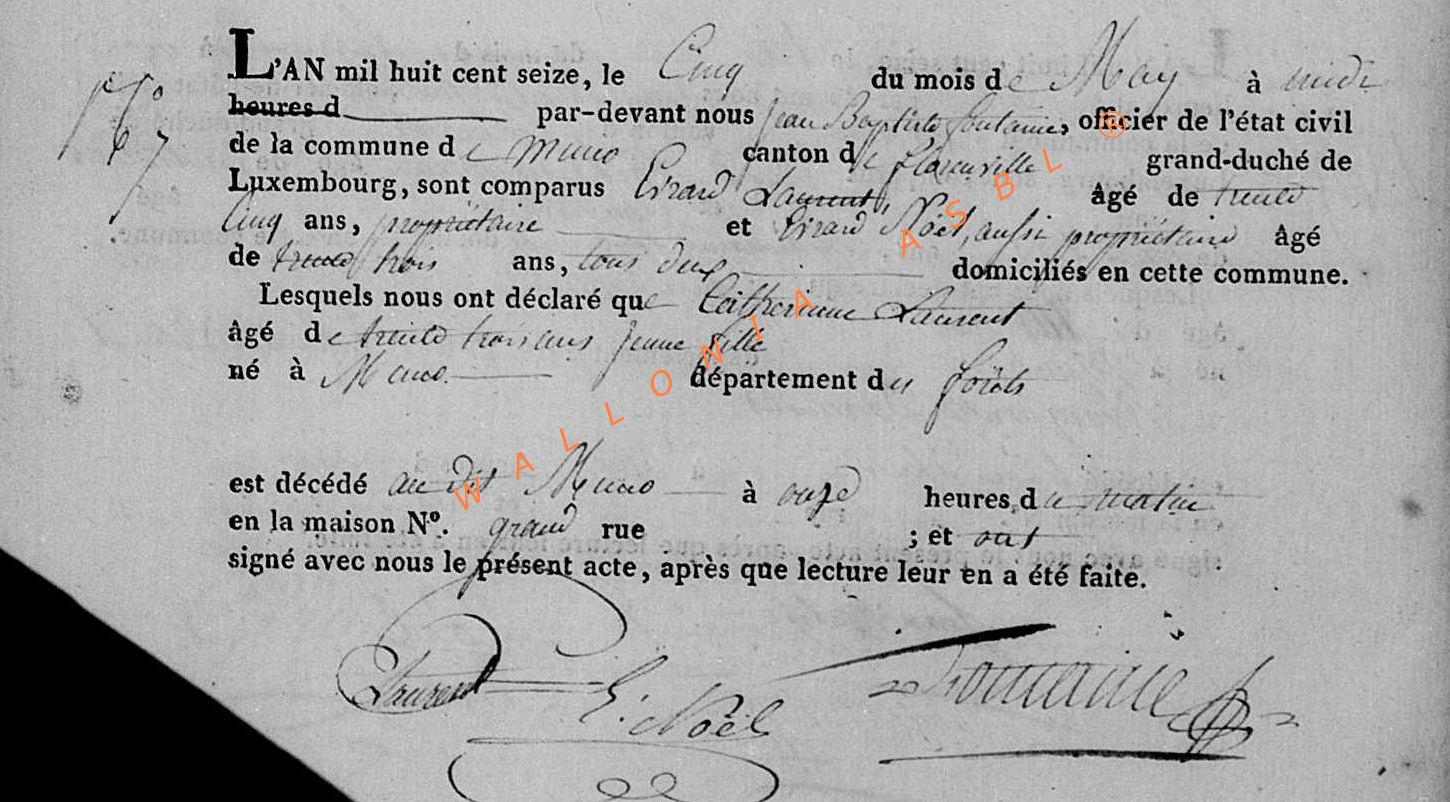 L'AN mil huit cent seize, le Cinq du mois de May à midi
N° 7
heures d par-devant nous jean Baptiste fontaine, officier de l'état civil
de la commune de muno canton de florenville grand-duché de
Luxembourg, sont comparus Erard Laurent, âgé de trente
Cinq ans, propriétaire et Erard Noël, aussi propriétaire âgé
de trente trois ans, tous deux domiciliés en cette commune.
Lesquels nous ont déclaré que Catherinne Laurent
âgé de trente trois ans jeune fille
né à Muno département des forêts
est décédé au dit Muno à onze heures du matin
en la maison N°. grand rue ; et ont
signé avec nous le présent acte, après que lecture leur en a été faite.
Laurent E. Noël Fontaine
WALLONIA ASBL ®